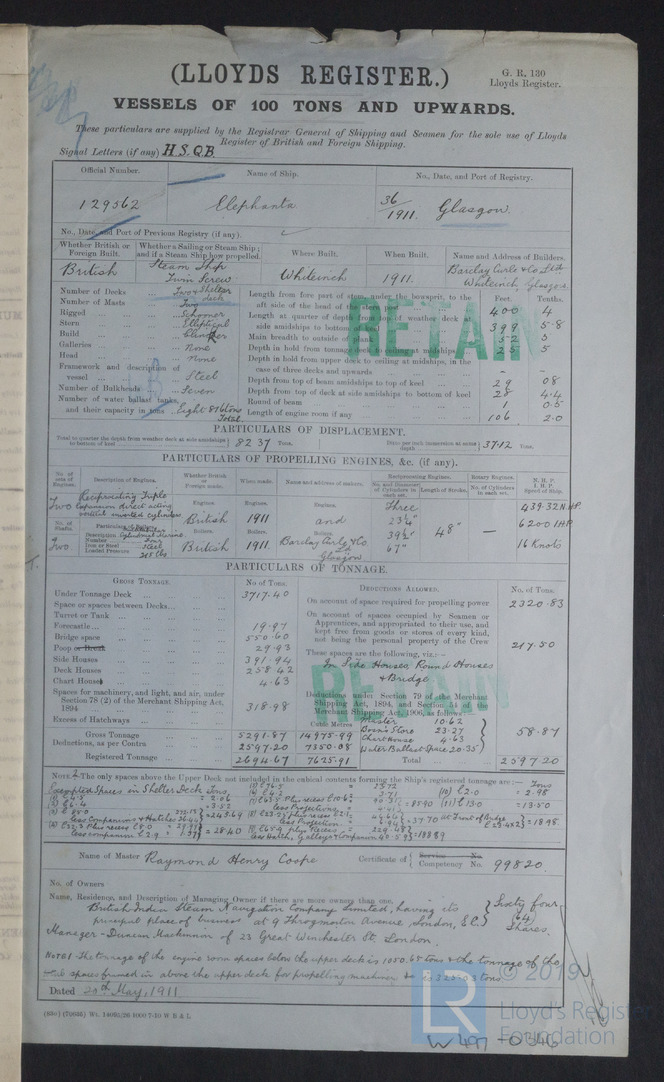 (LLOYDS REGISTER.)
G. R. 130
Lloyds Register.
VESSELS OF 100 TONS AND UPWARDS.
These particulars are supplied by the Registrar General of Shipping and Seamen for the sole use of Lloyds
Register of British and Foreign Shipping.
Signal Letters (if any) H.S.Q.B.
Official Number. Name of Ship. No., Date, and Port of Registry.
129562 Elephanta 36/1911. Glasgow.
No., Date, and Port of Previous Registry (if any).
Whether British or Foreign Built. Whether a Sailing or Steam Ship; and if a Steam Ship how propelled. Where Built. When Built. Name and Address of Builders.
British Steam Ship Twin Screw Whiteinch 1911. Barclay Curle & Co Ltd Whiteinch Glasgow.
Number of Decks Two & Shelter deck
Number of Masts Two
Rigged Schooner
Stern Elliptical
Build Clincher
Galleries None
Head None
Framework and description of vessel Steel
Number of Bulkheads Seven
Number of water ballast tanks, and their capacity in tons Eight 816 tons Total
Feet. Tenths.
Length from fore part of stem, under the bowsprit, to the aft side of the head of 400 4
Length at quarter of depth from top of weather deck at side amidships to bottom 399 5·8
Main breadth to outside of 52 5
Depth in hold from tonnage deck to ceiling at midships 25 5
Depth in hold from upper deck to ceiling at midships, in the case of three decks and upwards - -
Depth from top of beam amidships to top of keel 29 08
Depth from top of deck at side amidships to bottom of keel 28 4·4
Round of beam 1 0·5
Length of engine room if any 106 2·0
RETAIN
PARTICULARS OF DISPLACEMENT.
Total to quarter the depth from weather deck at side amidships to bottom of keel 8237 Tons. Ditto per inch immersion at same depth 37·12 Tons.
PARTICULARS OF PROPELLING ENGINES, &c. (if any).
No. of sets of Engines. Description of Engines. Whether British or Foreign made. When made. Name and address of makers. Reciprocating Engines. No. and Diameter of Cylinders in each set. Length of Stroke. Rotary Engines. No. of Cylinders in each set. N. H. P. I. H. P. Speed of Ship.
Two Reciprocating Triple expansion direct acting vertical inverted cylinders
Engines. British Engines. 1911 Engines. and Three 23¼" 39½" 67" 48" - 439·32 NHP 6200 IHP 16 Knots
No. of Shafts. Two
Particulars of Boilers.
Description Cylindrical Marine
Number Four
Iron or Steel Steel
Loaded Pressure 215 lbs
Boilers. British Boilers. 1911. Boilers. Barclay Curle & Co Ld Glasgow
PARTICULARS OF TONNAGE.
GROSS TONNAGE. No of Tons. DEDUCTIONS ALLOWED. No. of Tons.
Under Tonnage Deck 3717·40
Space or spaces between Decks
Turret or Trunk
Forecastle 19·97
Bridge space 550·60
Poop or Break 29·93
Side Houses 391·94
Deck Houses 258·42
Chart House 4·63
Spaces for machinery, and light, and air, under Section 78 (2) of the Merchant Shipping Act, 1894 318·98
Excess of Hatchways
Cubic Metres
Gross Tonnage 5291·87 14975·99
Deductions, as per Contra 2597·20 7350·08
Registered Tonnage 2694·67 7625·91
On account of space required for propelling power 2320·83
On account of spaces occupied by Seamen or Apprentices, and appropriated to their use, and kept free from goods or stores of every kind, not being the personal property of the Crew 217·50
These spaces are the following, viz.:—
In Side Houses, Round Houses & Bridge
RETAIN
Deductions under Section 79 of the Merchant Shipping Act, 1894, and Section of the Merchant Shipping Act, 1906, as follows:
Master 10·62
Bosn's Store 23·27
Chart House 4·63
Water Ballast Space 20·35
58·87
Total 2597·20
NOTE.—The only spaces above the Upper Deck not included in the cubical contents forming the ship's registered tonnage are:—
Exempted Spaces in Shelter Deck Tons
Name of Master Raymond Henry Cooke Certificate of Service No. Competency No. 99820.
No. of Owners
Name, Residence, and Description of Managing Owner if there are more owners than one.
British India Steam Navigation Company Limited, having its Sixty four
principal place of business at 9 Throgmorton Avenue, London, E.C. (64) Shares.
Manager - Duncan Mackinnon of 23 Great Winchester St, London.
NOTE! The tonnage of the engine room spaces below the upper deck is 1050·65 tons & the tonnage of the
total spaces framed in above the upper deck for propelling machinery tons
Dated 20th May, 1911
(850) (70635) Wt. 14093/26 1000 7-10 W B & L
© 2019
LR
Lloyd's Register
Foundation
W497-0346